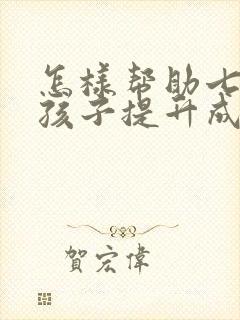 怎樣帮助七
孩子提升成
賀宏偉